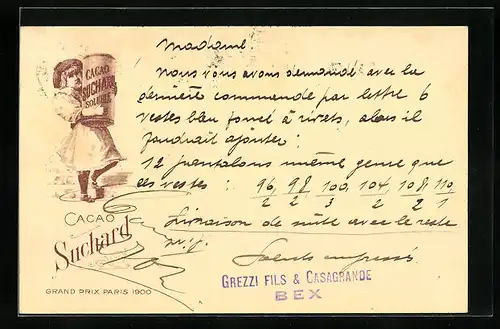 Madame!
Nous vous avons demandé avec la
dernière commende par lettre 6
vestes bleu foncé à rivets, alors il
faudrait ajouter:
12 pantalons même genre que
ces vestes : 96, 98 100, 104, 108, 110
2 2 3 2 2 1
Livraison de suite avec le reste
s.v.p.
Saluts empressés
GREZZI FILS & CASAGRANDE
BEX
CACAO
SUCHARD
SOLUBLE
CACAO
Suchard
GRAND PRIX PARIS 1900